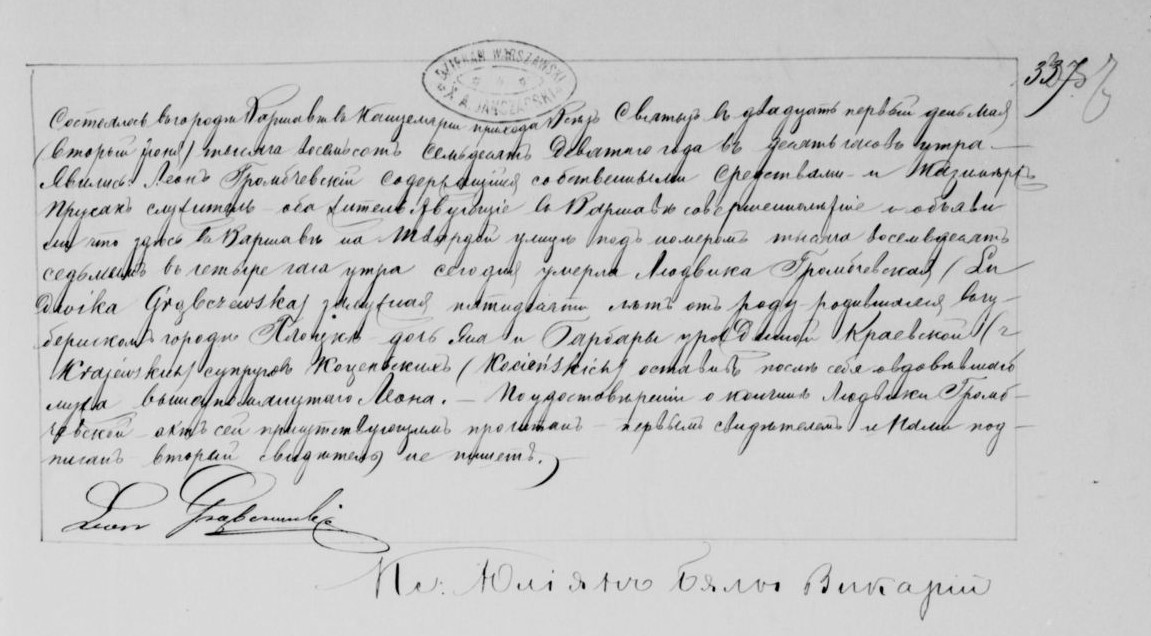 DZIEKAN WARSZAWSKI
337
Состоялось въ городѣ Варшавѣ въ Канцеляріи прихода Всѣхъ Святыхъ въ двадцать первый день мая
(второй іюня) тысяча восемьсотъ семьдесятъ девятаго года въ десять часовъ утра —
Явились: Леонъ Громбчевскій содержащійся собственными средствами и Казиміръ
Прусакъ служитель оба жительствующіе въ Варшавѣ совершеннолѣтніе и объяви
ли что здѣсь въ Варшавѣ на Твардой улицѣ подъ номеромъ тысяча восемьдесятъ
седьмымъ въ четыре часа утра сегодня умерла Людвика Громбчевская (Lu
dwika Grąbczewska) замужная пятидесяти лѣтъ отъ роду родившаяся въ гу-
бернскомъ городѣ Плоцкѣ дочь Яна и Барбары урожденной Краевской (z
Krajewskich) супруговъ Коценьскихъ (Kocieńskich) оставивъ послѣ себя овдовѣвшаго
мужа вышеупомянутаго Леона. — По удостовѣреніи о кончинѣ Людвики Громб-
чевской актъ сей присутствующимъ прочитанъ первымъ свидѣтелемъ и Нами под-
писанъ второй свидѣтель не пишетъ.
Leon Grąbczewski
Кс: Юліянъ Бялы Викарій